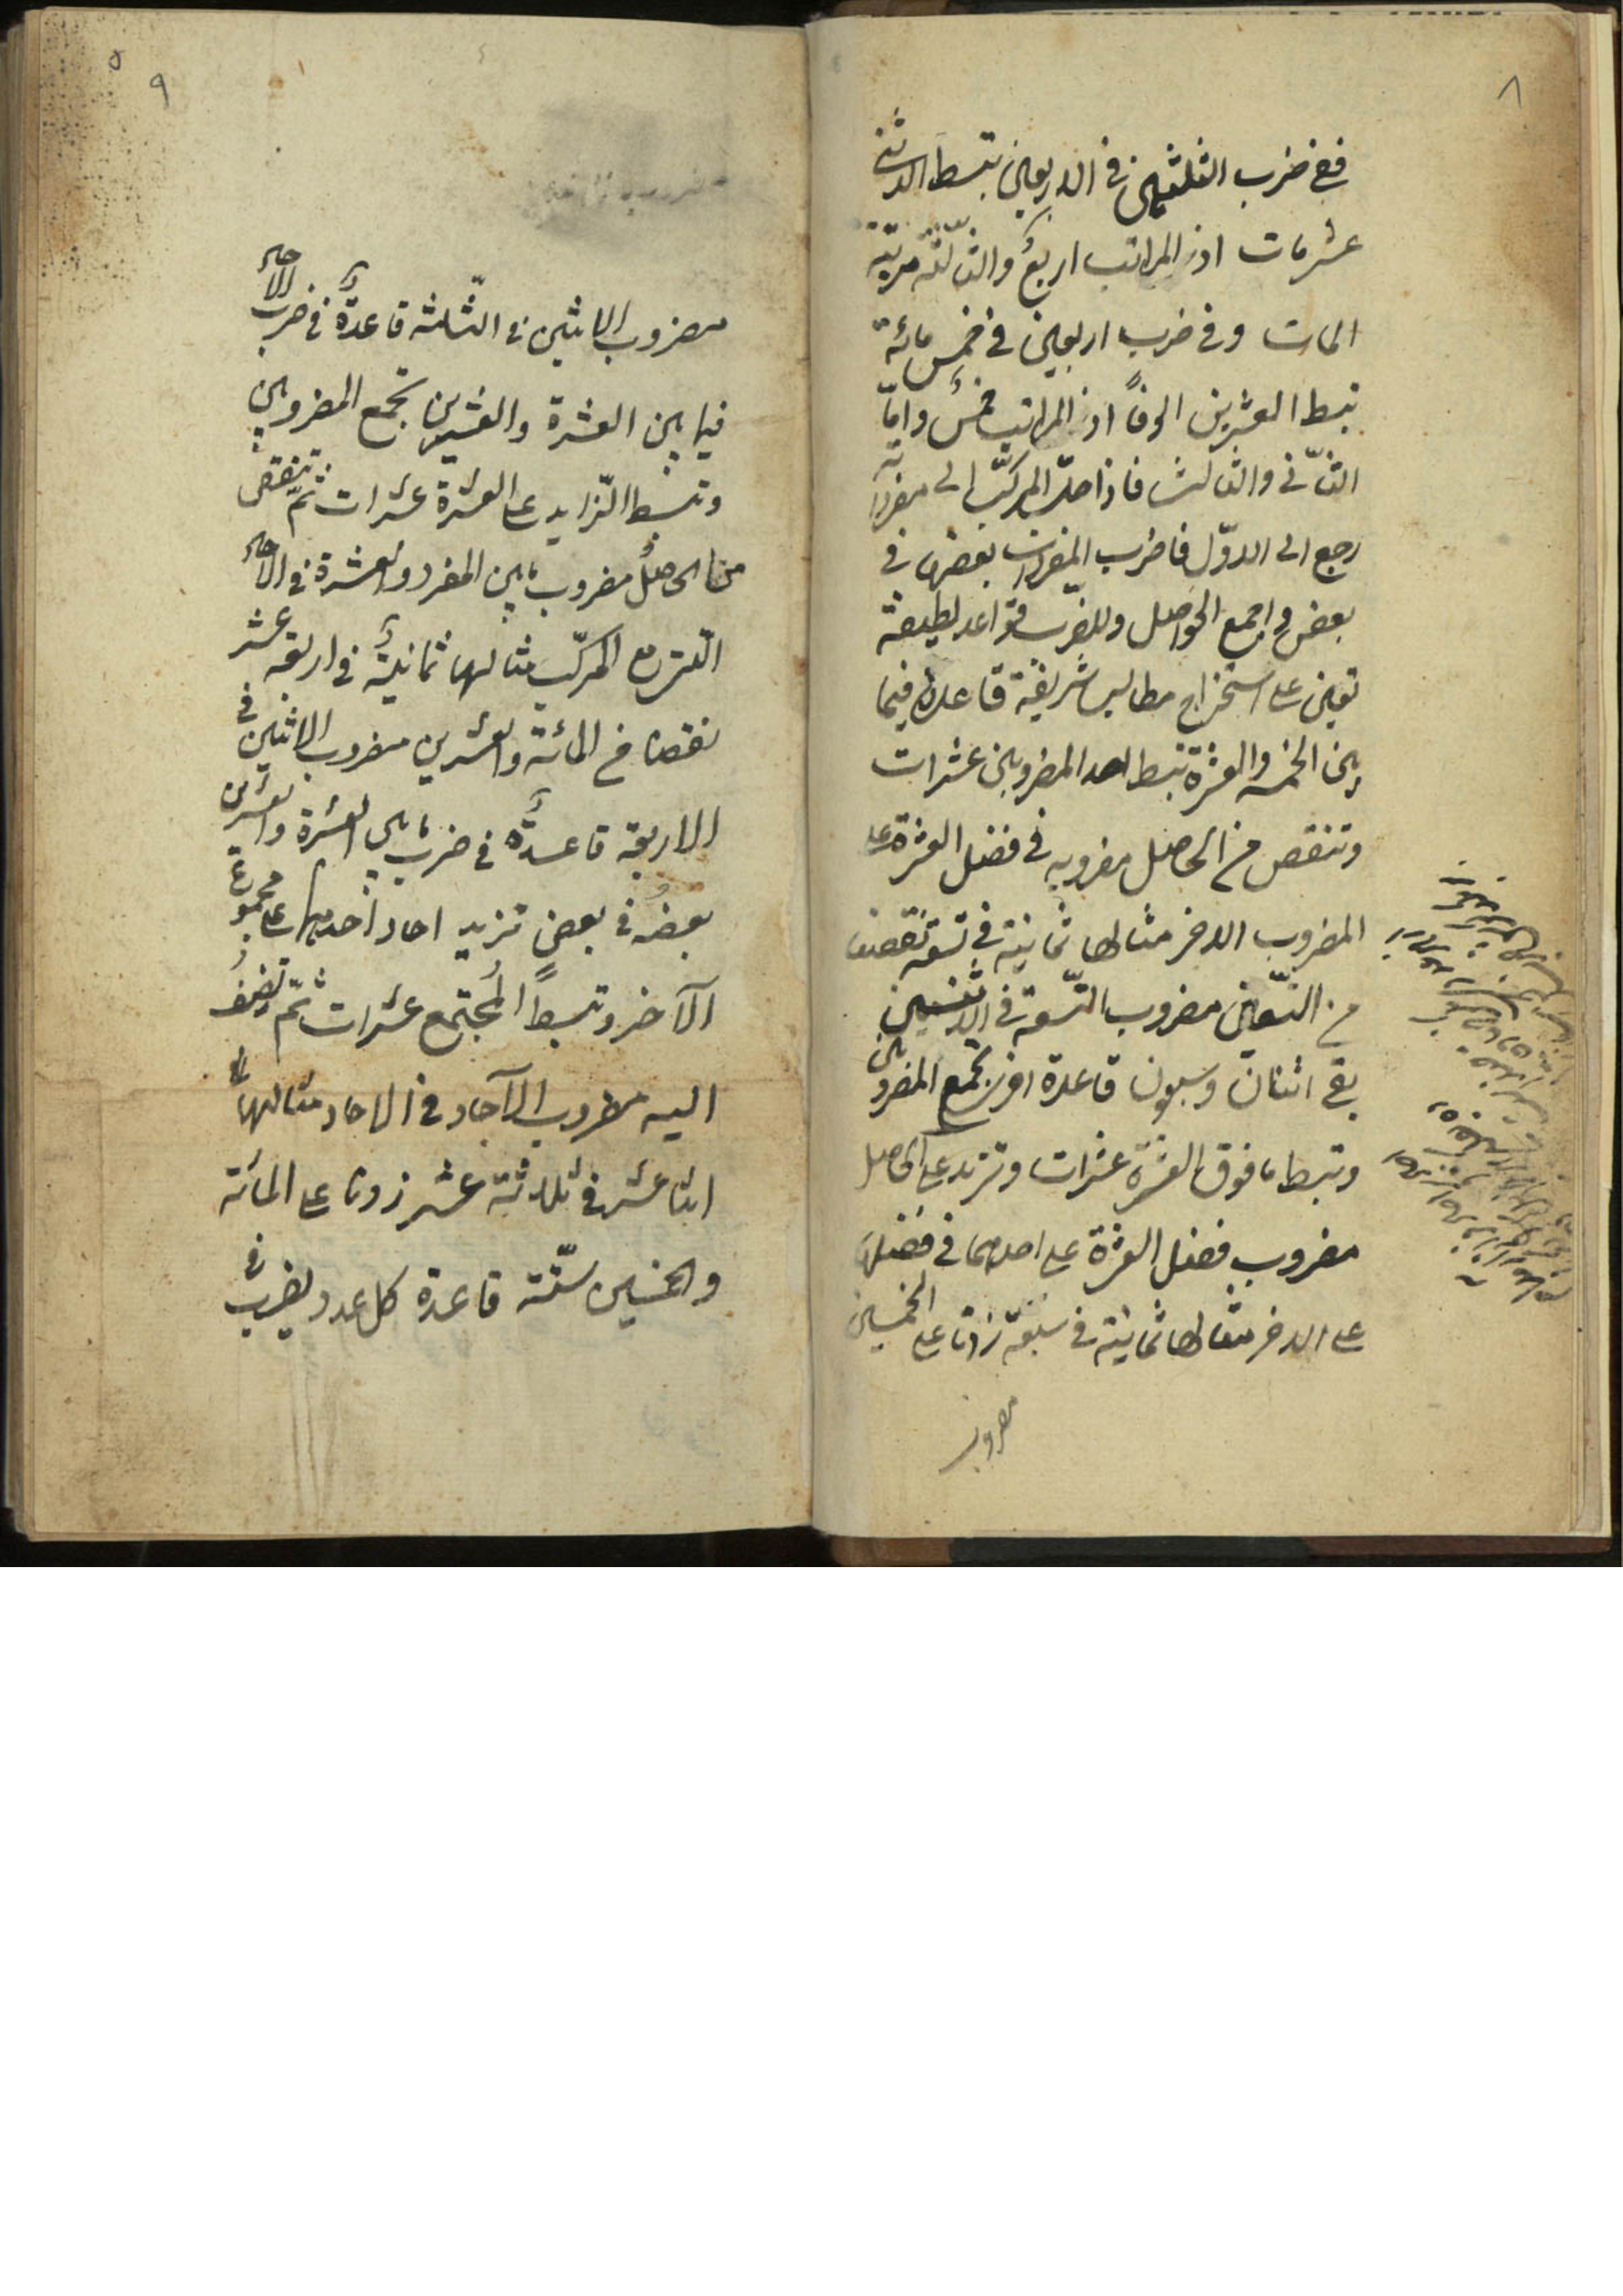 ٨
ففي ضرب الثلثين في الاربعين تبسط الاثنى
عشر مات اذ المراتب اربع والثالثة مرتبة
المات وفي ضرب اربعين في خمس مائة
تبسط العشرين الوفاً اذ المراتب خمس وامّا
الثّاني والثالث فاذا حلّ المركّب الى مفرداته
رجع الى الاوّل فاضرب المفردات بعضها في
بعض واجمع الحواصل وللضرب قواعد لطيفة
تعين على استخراج مطالب شريفة قاعدة فيما
بين الخمسة والعشرة تبسط احد المضروبين عشرات
وتنقص من الحاصل مضروبه في فضل العشرة على
المضروب الاخر مثالها ثمانية في تسعة نقصنا
من التّسعين مضروب التّسعة في الاثنين
بقى اثنان وسبعون قاعدة اخرى تجمع المضروبين
وتبسط ما فوق العشرة عشرات وتزيد على الحاصل
مضروب فضل العشرة على احدهما في فضلها
على الاخر مثالها ثمانية في سبعة زدنا على الخمسين
مضروب
٩
مضروب الاثنين في الثّلثه قاعدةٌ في ضرب الآحاد
فيما بين العشرة والعشرين تجمع المضروبين
وتبسط الزّايد على العشرة عشرات ثمّ تنقص
من الحاصلُ مضروب ما بين المفرد والعشرة في الآحاد
التى مع المركّب مثالها ثمانية في اربعة عشر
نقصنا من المائة والعشرين مضروب الاثنين في
الاربعة قاعدةٌ في ضرب ما بين العشرة والعشرين
بعضُه في بعض تزيد احاد احدهما على مجموع
الآخر وتبسط المجتمع عشرات ثمّ تضيفُ
اليه مضروب الآحاد في الاحاد مثالها
اثنا عشر في ثلاثة عشر زدنا على المائة
والخمسين ستّة قاعدة كل عدد يضرب في